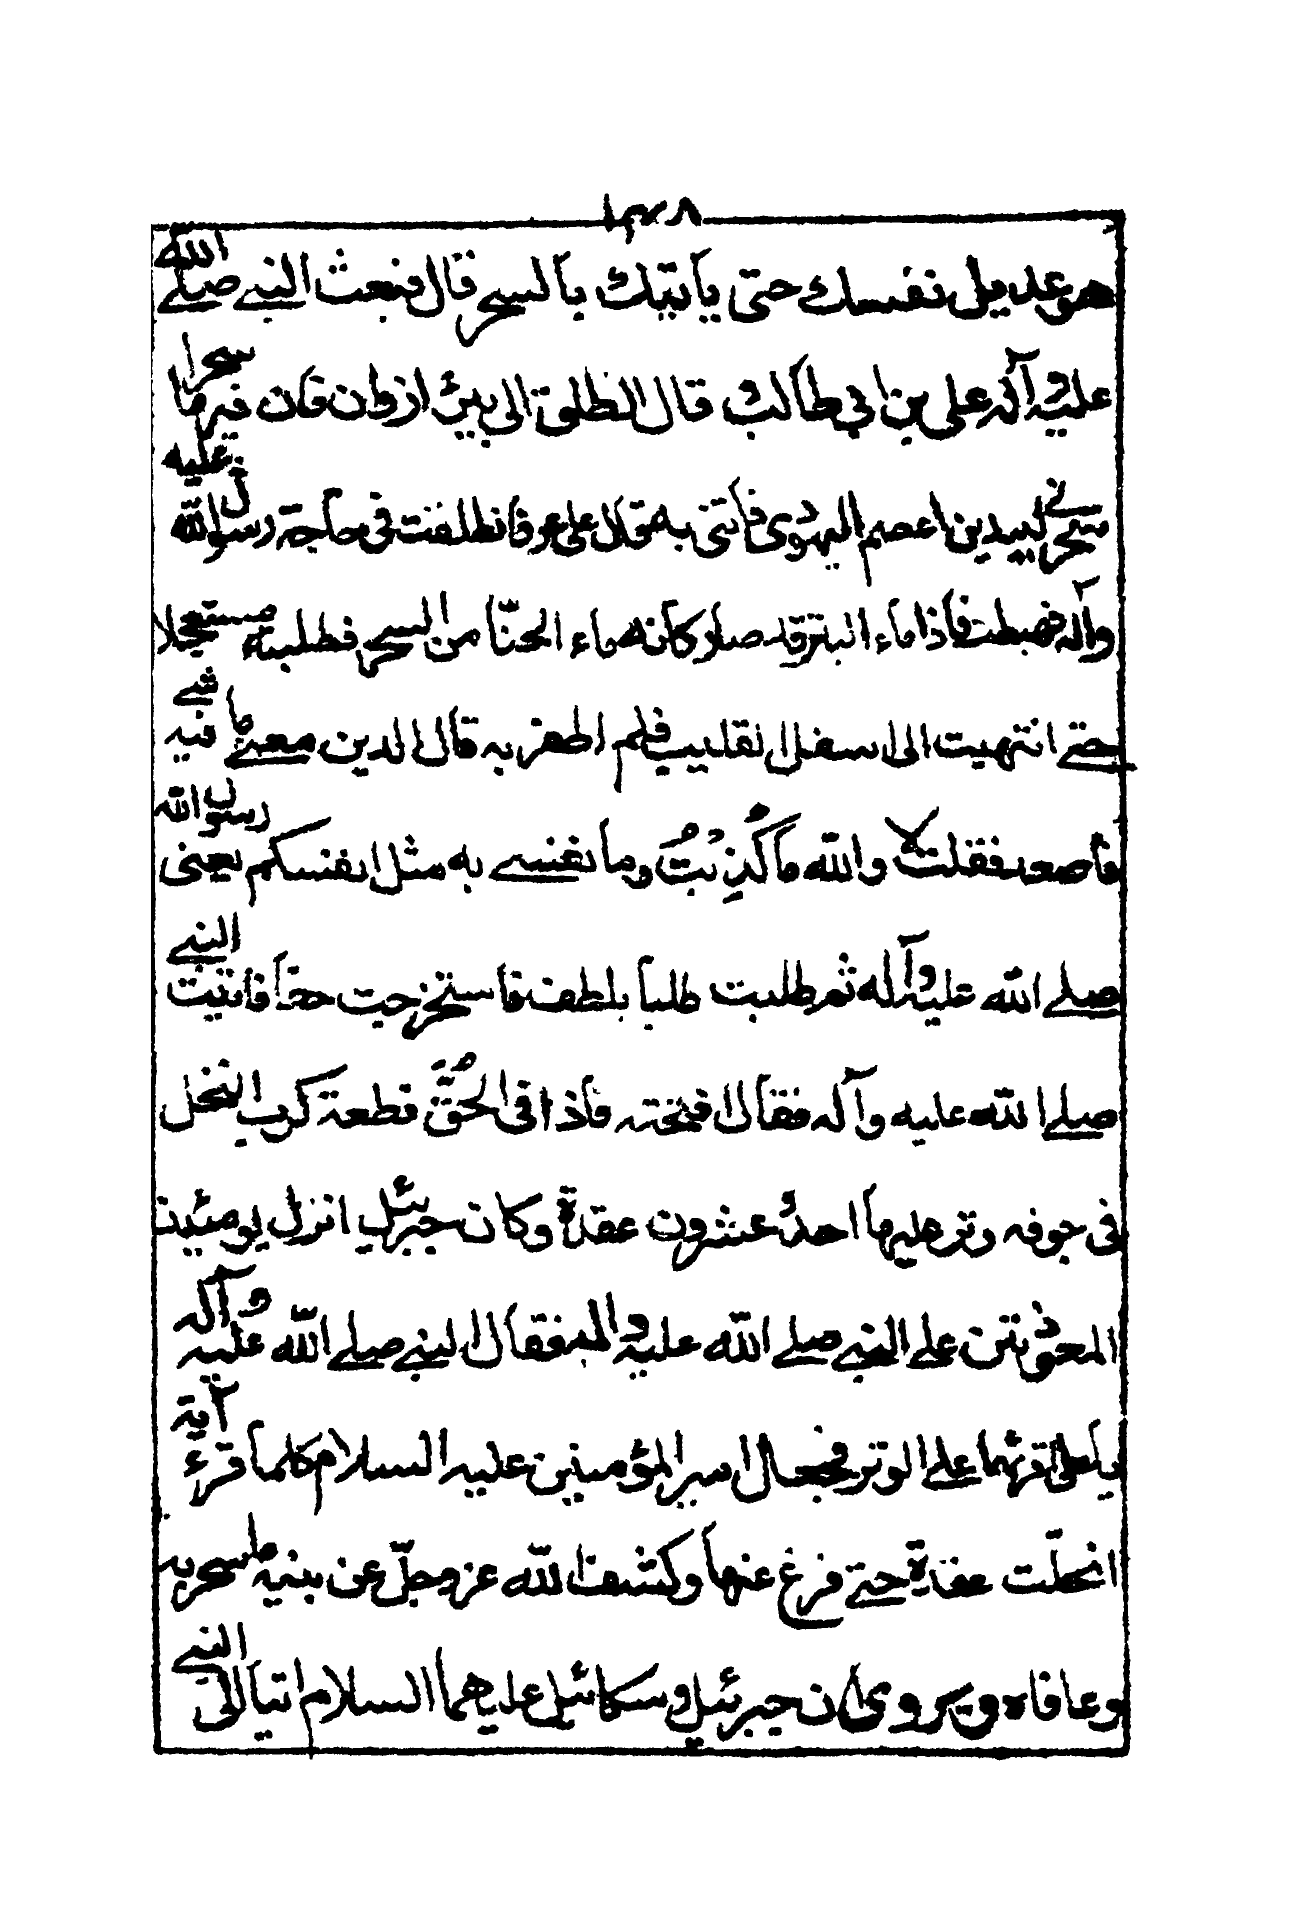 ١٤٨
هو عديل نفسك حتى يأتيك بالسحر قال فبعث النبي صلى الله
عليه وآله علي بن ابي طالب وقال انطلق الى بئر ازوان فان فيها سحرا
سحرني لبيد بن اعصم اليهودي فأتني به قال علي ع فانطلقت في حاجة رسول الله عليه
وآله فهبطت فأذا ماء البئر قد صار كأنه ماء الحنّا من السحر فطلبته مستعجلا
حتى انتهيت الى اسفل القليب فلم اظفر به قال الذين معي ما فيه شي
فاصعد فقلت لا والله ما كَذِبتُ وما نفسي به مثل انفسكم يعني رسول الله
صلى الله عليه وآله ثم طلبت طلباً بلطف فأستخرجت حقاً فاتيت النبي
صلى الله عليه وآله فقال افتحه ففتحته فأذا في الحُقِّ قطعة كرب النخل
في جوفه وتر عليها احدُ وعشرون عقدة وكان جبرئيل انزل يومئذ
المعوذتين على النبي صلى الله عليه وآله فقال النبي صلى الله عليه وآله
يا علي اقرئهما على الوتر فجعل امير المؤمنين عليه السلام كلما قرء آية
انحلّت عقدة حتى فرغ عنها وكشف الله عز وجلّ عن نبيه ما سحر به
وعافاه ويروى ان جبرئيل وميكائيل عليهما السلام اتيا الى النبي